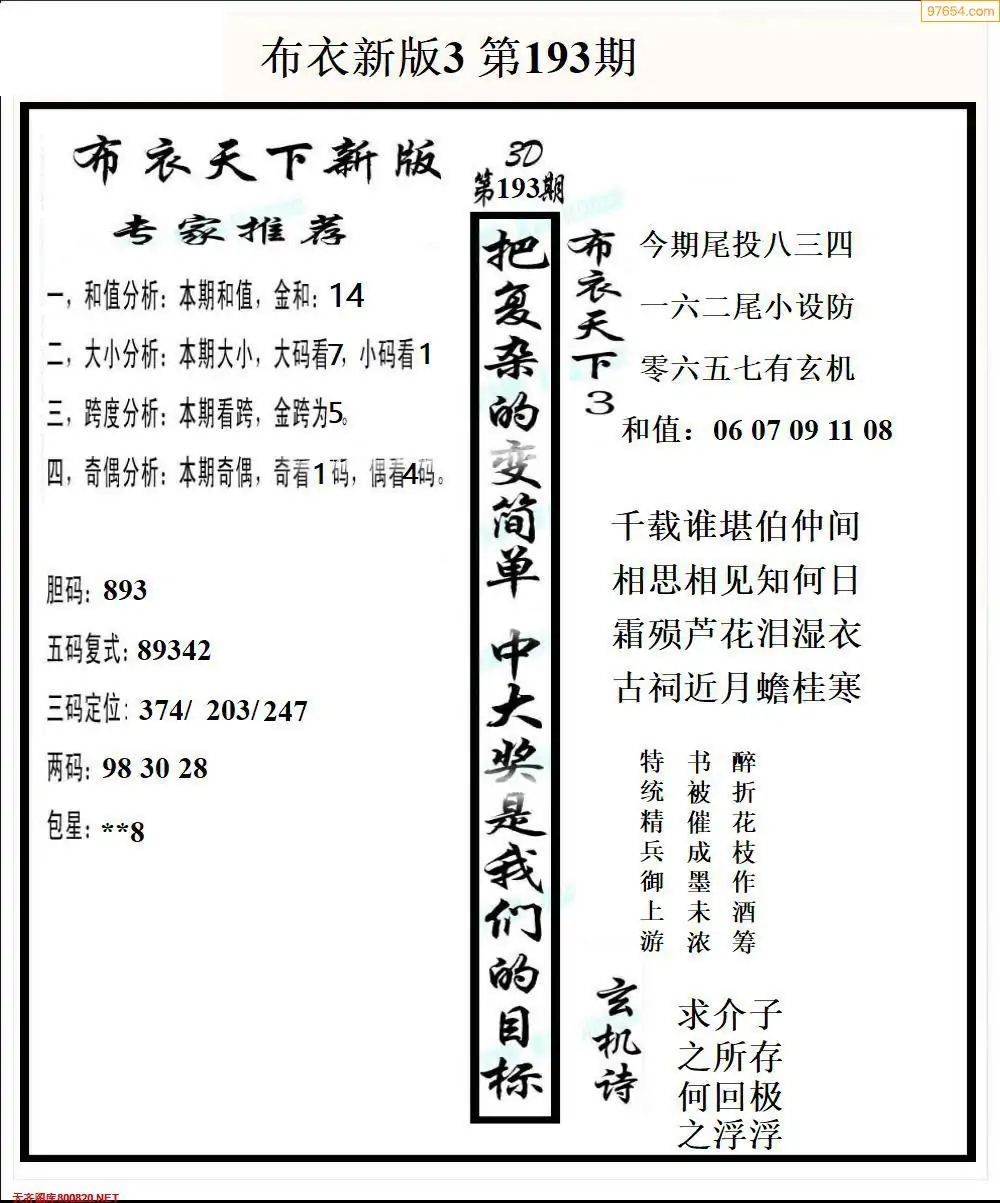 97654.com
布衣新版3 第193期
布衣天下新版
专家推荐
一，和值分析：本期和值，金和：14
二，大小分析：本期大小，大码看7，小码看1
三，跨度分析：本期看跨，金跨为5。
四，奇偶分析：本期奇偶，奇看1码，偶看4码。
胆码：893
五码复式：89342
三码定位：374/ 203/247
两码：98 30 28
包星：**8
3D
第193期
把复杂的变简单 中大奖是我们的目标
布衣天下3
今期尾投八三四
一六二尾小设防
零六五七有玄机
和值：06 07 09 11 08
千载谁堪伯仲间
相思相见知何日
霜殒芦花泪湿衣
古祠近月蟾桂寒
醉折花枝作酒筹
书被催成墨未浓
特统精兵御上游
玄机诗
求介子
之所存
何回极
之浮浮
天齐图库800820.NET